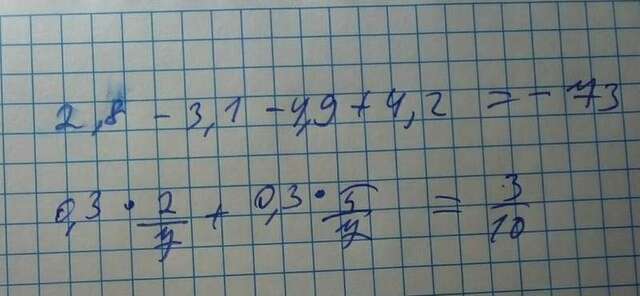 2,8 - 3,1 - 4,9 + 4,2 = - 73
0,3 · 2/7 + 0,3 · 5/7 = 3/10